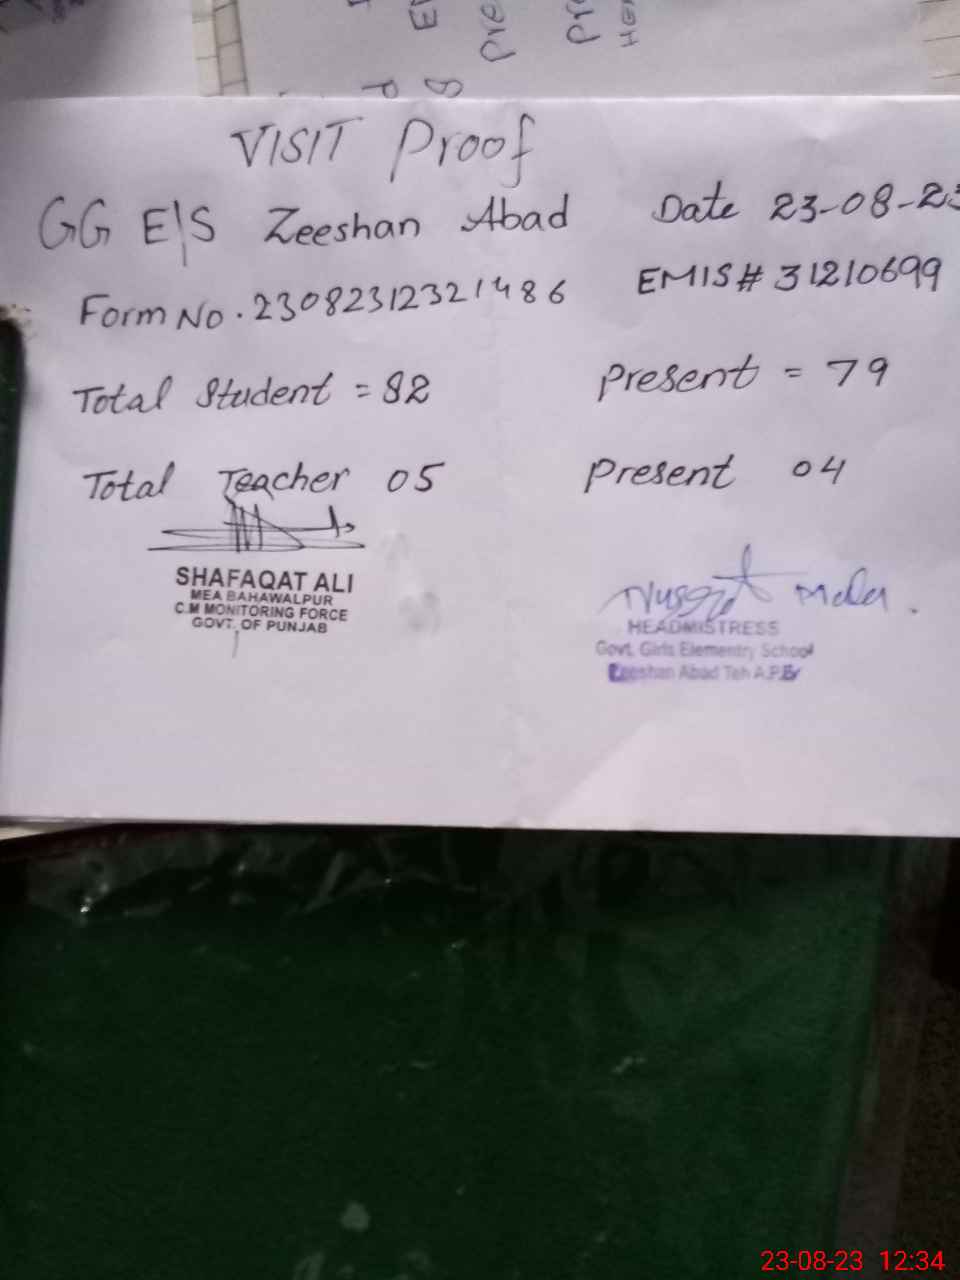 VISIT Proof
GG E/S Zeeshan Abad Date 23-08-23
Form No. 23082312321486 EMIS# 31210699
Total Student = 82 Present = 79
Total Teacher 05 Present 04
SHAFAQAT ALI
MEA BAHAWALPUR
C.M MONITORING FORCE
GOVT. OF PUNJAB
HEADMISTRESS
Govt. Girls Elementry School
Zeeshan Abad Teh A.P.E
23-08-23 12:34